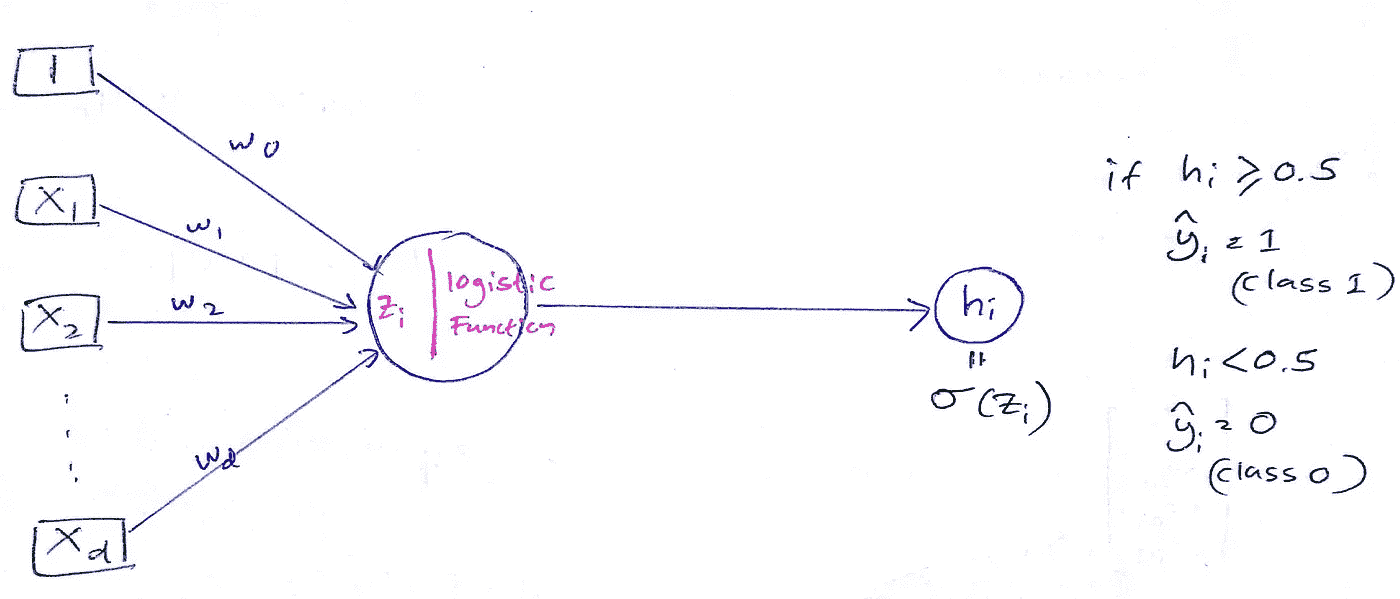 1
w₀
X₁
w₁
X₂
w₂
X_d
w_d
z_i
logistic
Function
h_i
=
σ(z_i)
if h_i ≥ 0.5
ŷ_i = 1
(class 1)
h_i < 0.5
ŷ_i = 0
(class 0)